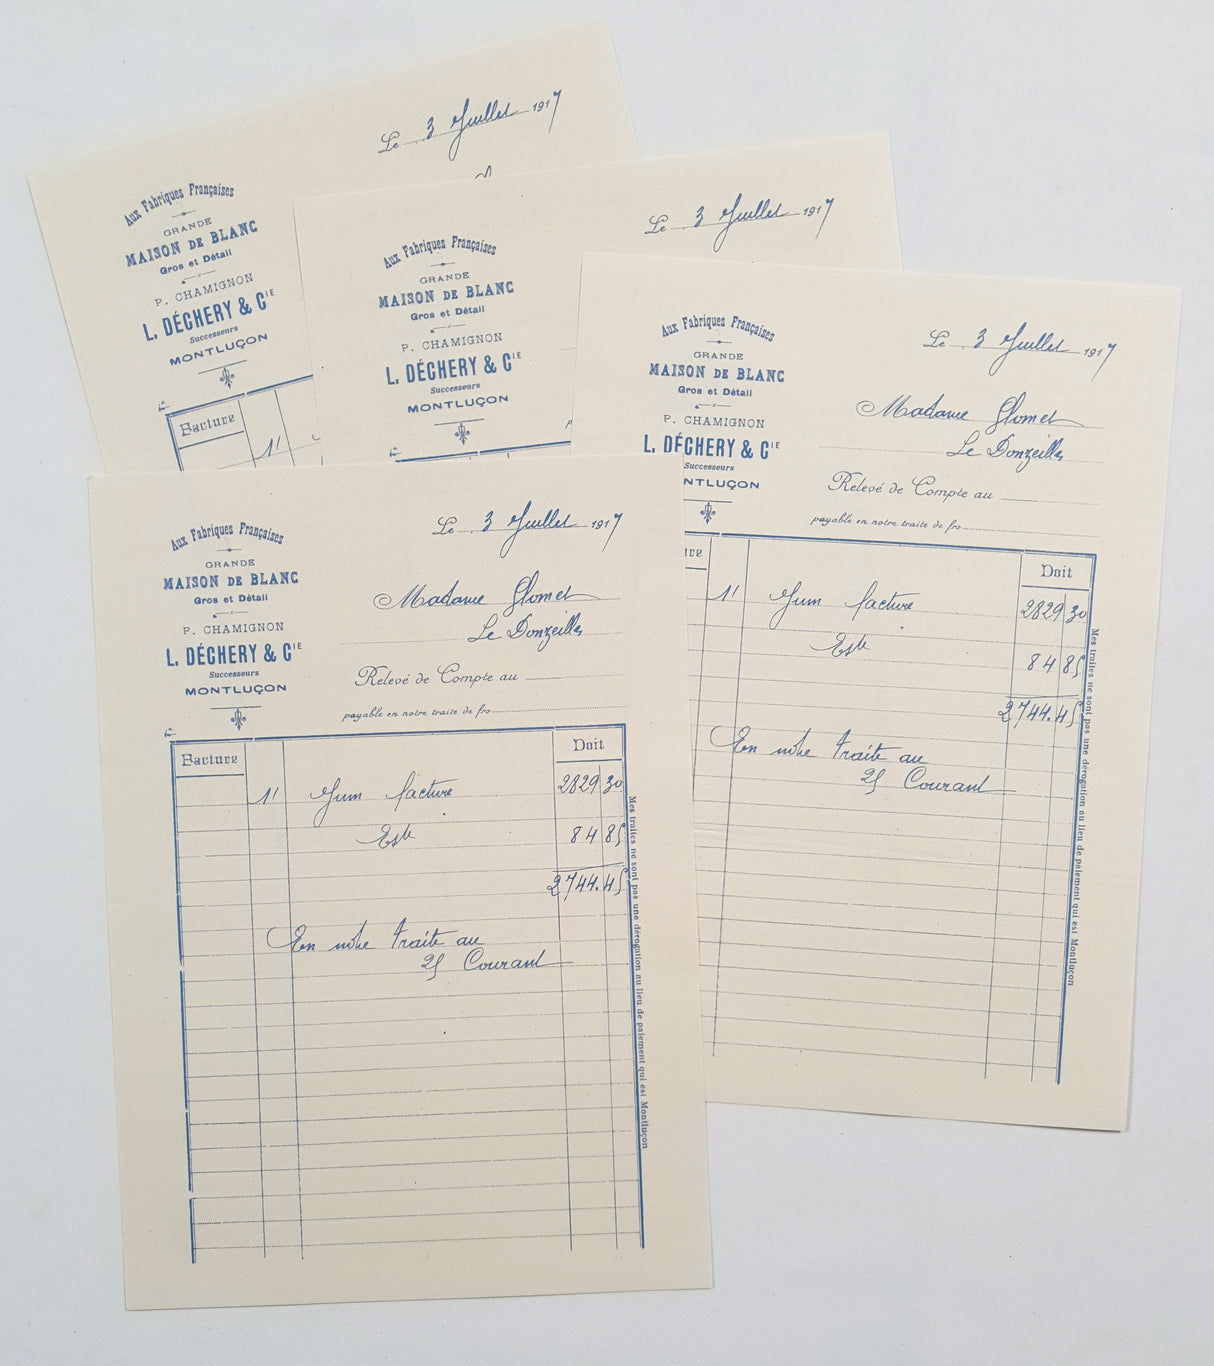 Le 3 Juillet 1917
Aux Fabriques Françaises
GRANDE
MAISON DE BLANC
Gros et Détail
P. CHAMIGNON
L. DÉCHERY & Cie
Successeurs
MONTLUÇON
Facture
Le 3 Juillet 1917
Aux Fabriques Françaises
GRANDE
MAISON DE BLANC
Gros et Détail
P. CHAMIGNON
L. DÉCHERY & Cie
Successeurs
MONTLUÇON
Le 3 Juillet 1917
Aux Fabriques Françaises
GRANDE
MAISON DE BLANC
Gros et Détail
P. CHAMIGNON
L. DÉCHERY & Cie
Successeurs
NTLUÇON
Madame Glomet
Le Donzeilles
Relevé de Compte au
payable en notre traite de frs
ure
Doit
1r Juin facture 2829 30
Este 84 85
2744.45
En notre traite au
25 Courant
Mes traites ne sont pas une dérogation au lieu de paiement qui est Montluçon
Le 3 Juillet 1917
Aux Fabriques Françaises
GRANDE
MAISON DE BLANC
Gros et Détail
P. CHAMIGNON
L. DÉCHERY & Cie
Successeurs
MONTLUÇON
Madame Glomet
Le Donzeilles
Relevé de Compte au
payable en notre traite de frs
Facture
Doit
1r Juin facture 2829 30
Este 84 85
2744.45
En notre traite au
25 Courant
Mes traites ne sont pas une dérogation au lieu de paiement qui est Montluçon